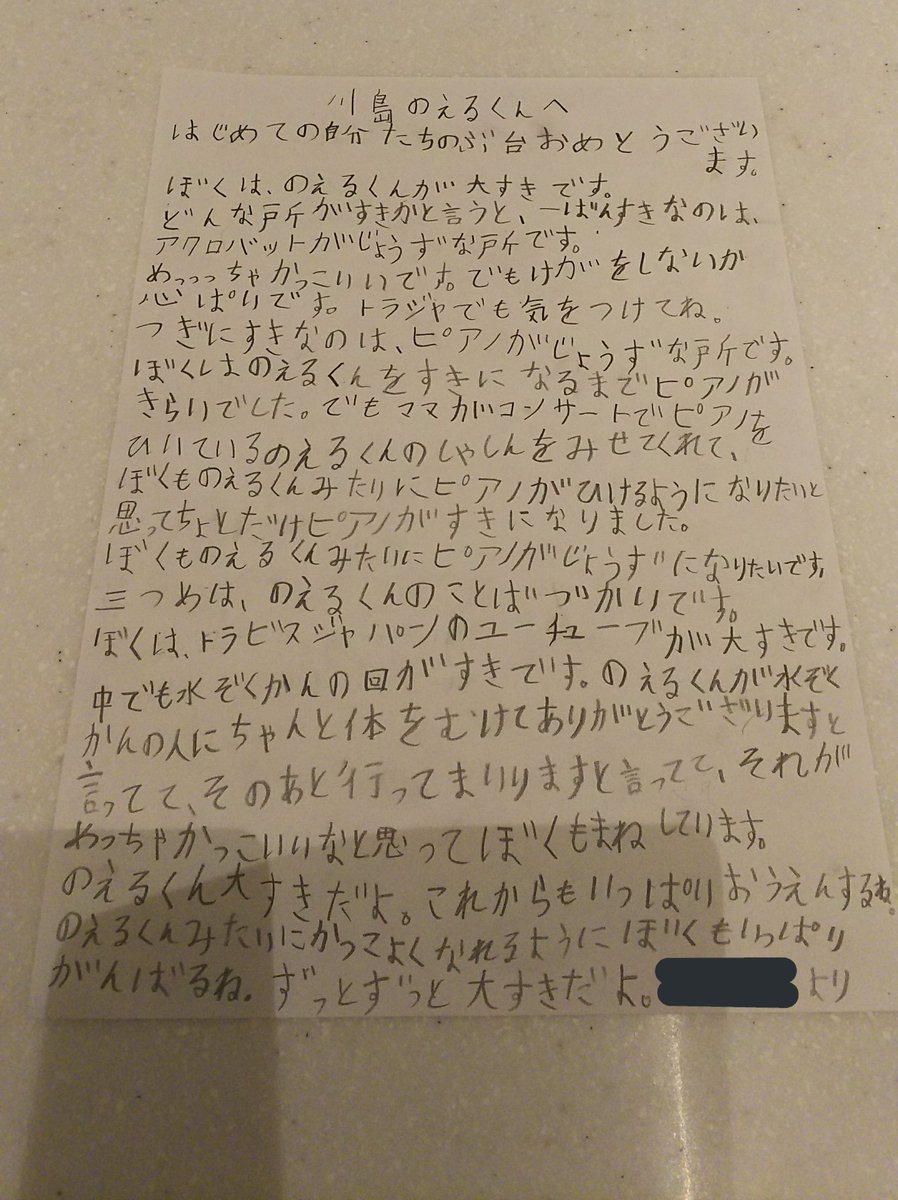 川島のえるくんへ
はじめての自分たちのぶ台おめとうござい
ます。
ぼくは、のえるくんが大すきです。
どんな所がすきかと言うと、一ばんすきなのは、
アクロバットがじょうずな所です。
めっっっちゃかっこいいです。でもけがをしないが
心ぱいです。トラジャでも気をつけてね。
つぎにすきなのは、ピアノがじょうずな所です。
ぼくはのえるくんをすきになるまでピアノが
きらいでした。でもママがコンサートでピアノを
ひいているのえるくんのしゃしんをみせてくれて、
ぼくものえるくんみたいにピアノがひけるようになりたいと
思ってちょとだけピアノがすきになりました。
ぼくものえるくんみたいにピアノがじょうずになりたいです。
三つめは、のえるくんのことばづかいです。
ぼくは、トラビスジャパンのユーチューブが大すきです。
中でも水ぞくかんの回がすきです。のえるくんが水ぞく
かんの人にちゃんと体をむけてありがとうございますと
言ってて、そのあと行ってまいりますと言ってて、それが
めっちゃかっこいいなと思ってぼくもまねしています。
のえるくん大すきだよ。これからもいっぱいおうえんするね。
のえるくんみたいにかっこよくなれるようにぼくもいっぱい
がんばるね。ずっとずっと大すきだよ。 より